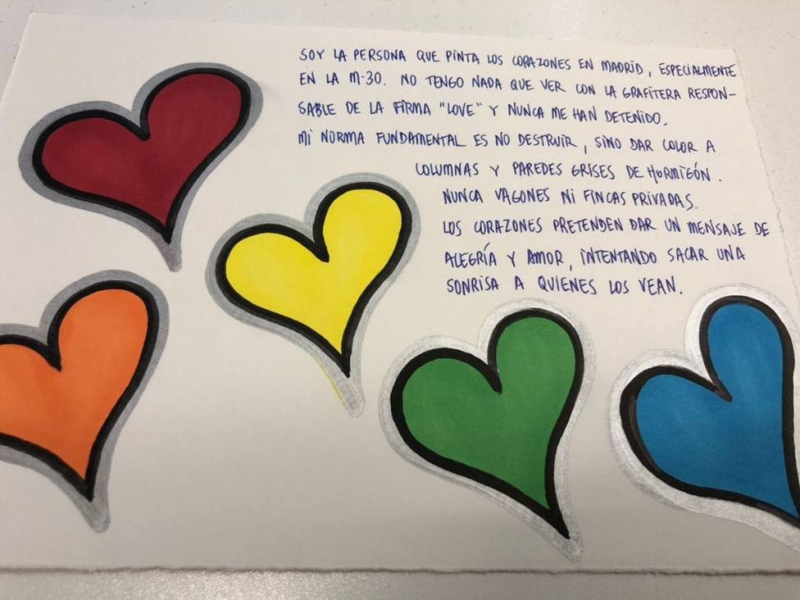 SOY LA PERSONA QUE PINTA LOS CORAZONES EN MADRID, ESPECIALMENTE
EN LA M-30. NO TENGO NADA QUE VER CON LA GRAFITERA RESPON-
SABLE DE LA FIRMA "LOVE" Y NUNCA ME HAN DETENIDO.
MI NORMA FUNDAMENTAL ES NO DESTRUIR, SINO DAR COLOR A
COLUMNAS Y PAREDES GRISES DE HORMIGÓN.
NUNCA VAGONES NI FINCAS PRIVADAS.
LOS CORAZONES PRETENDEN DAR UN MENSAJE DE
ALEGRÍA Y AMOR, INTENTANDO SACAR UNA
SONRISA A QUIENES LOS VEAN.